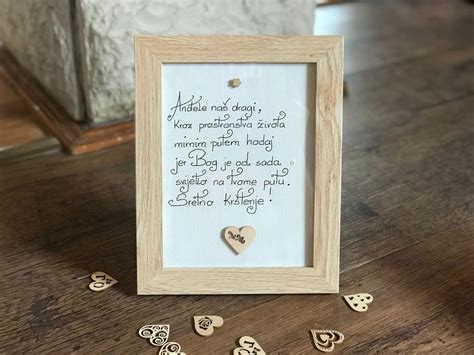 Anđele naš dragi,
Kroz prostranstva života
mirnim putem hodaj
jer Bog je od sada
svijetlo na tvome putu.
Sretno Krštenje!